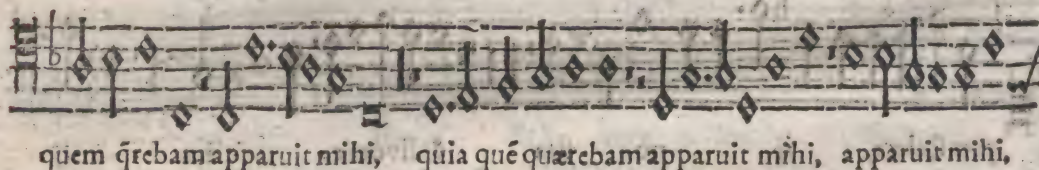 quem q̄rebam apparuit mihi, quia quē quærebam apparuit mihi, apparuit mihi,